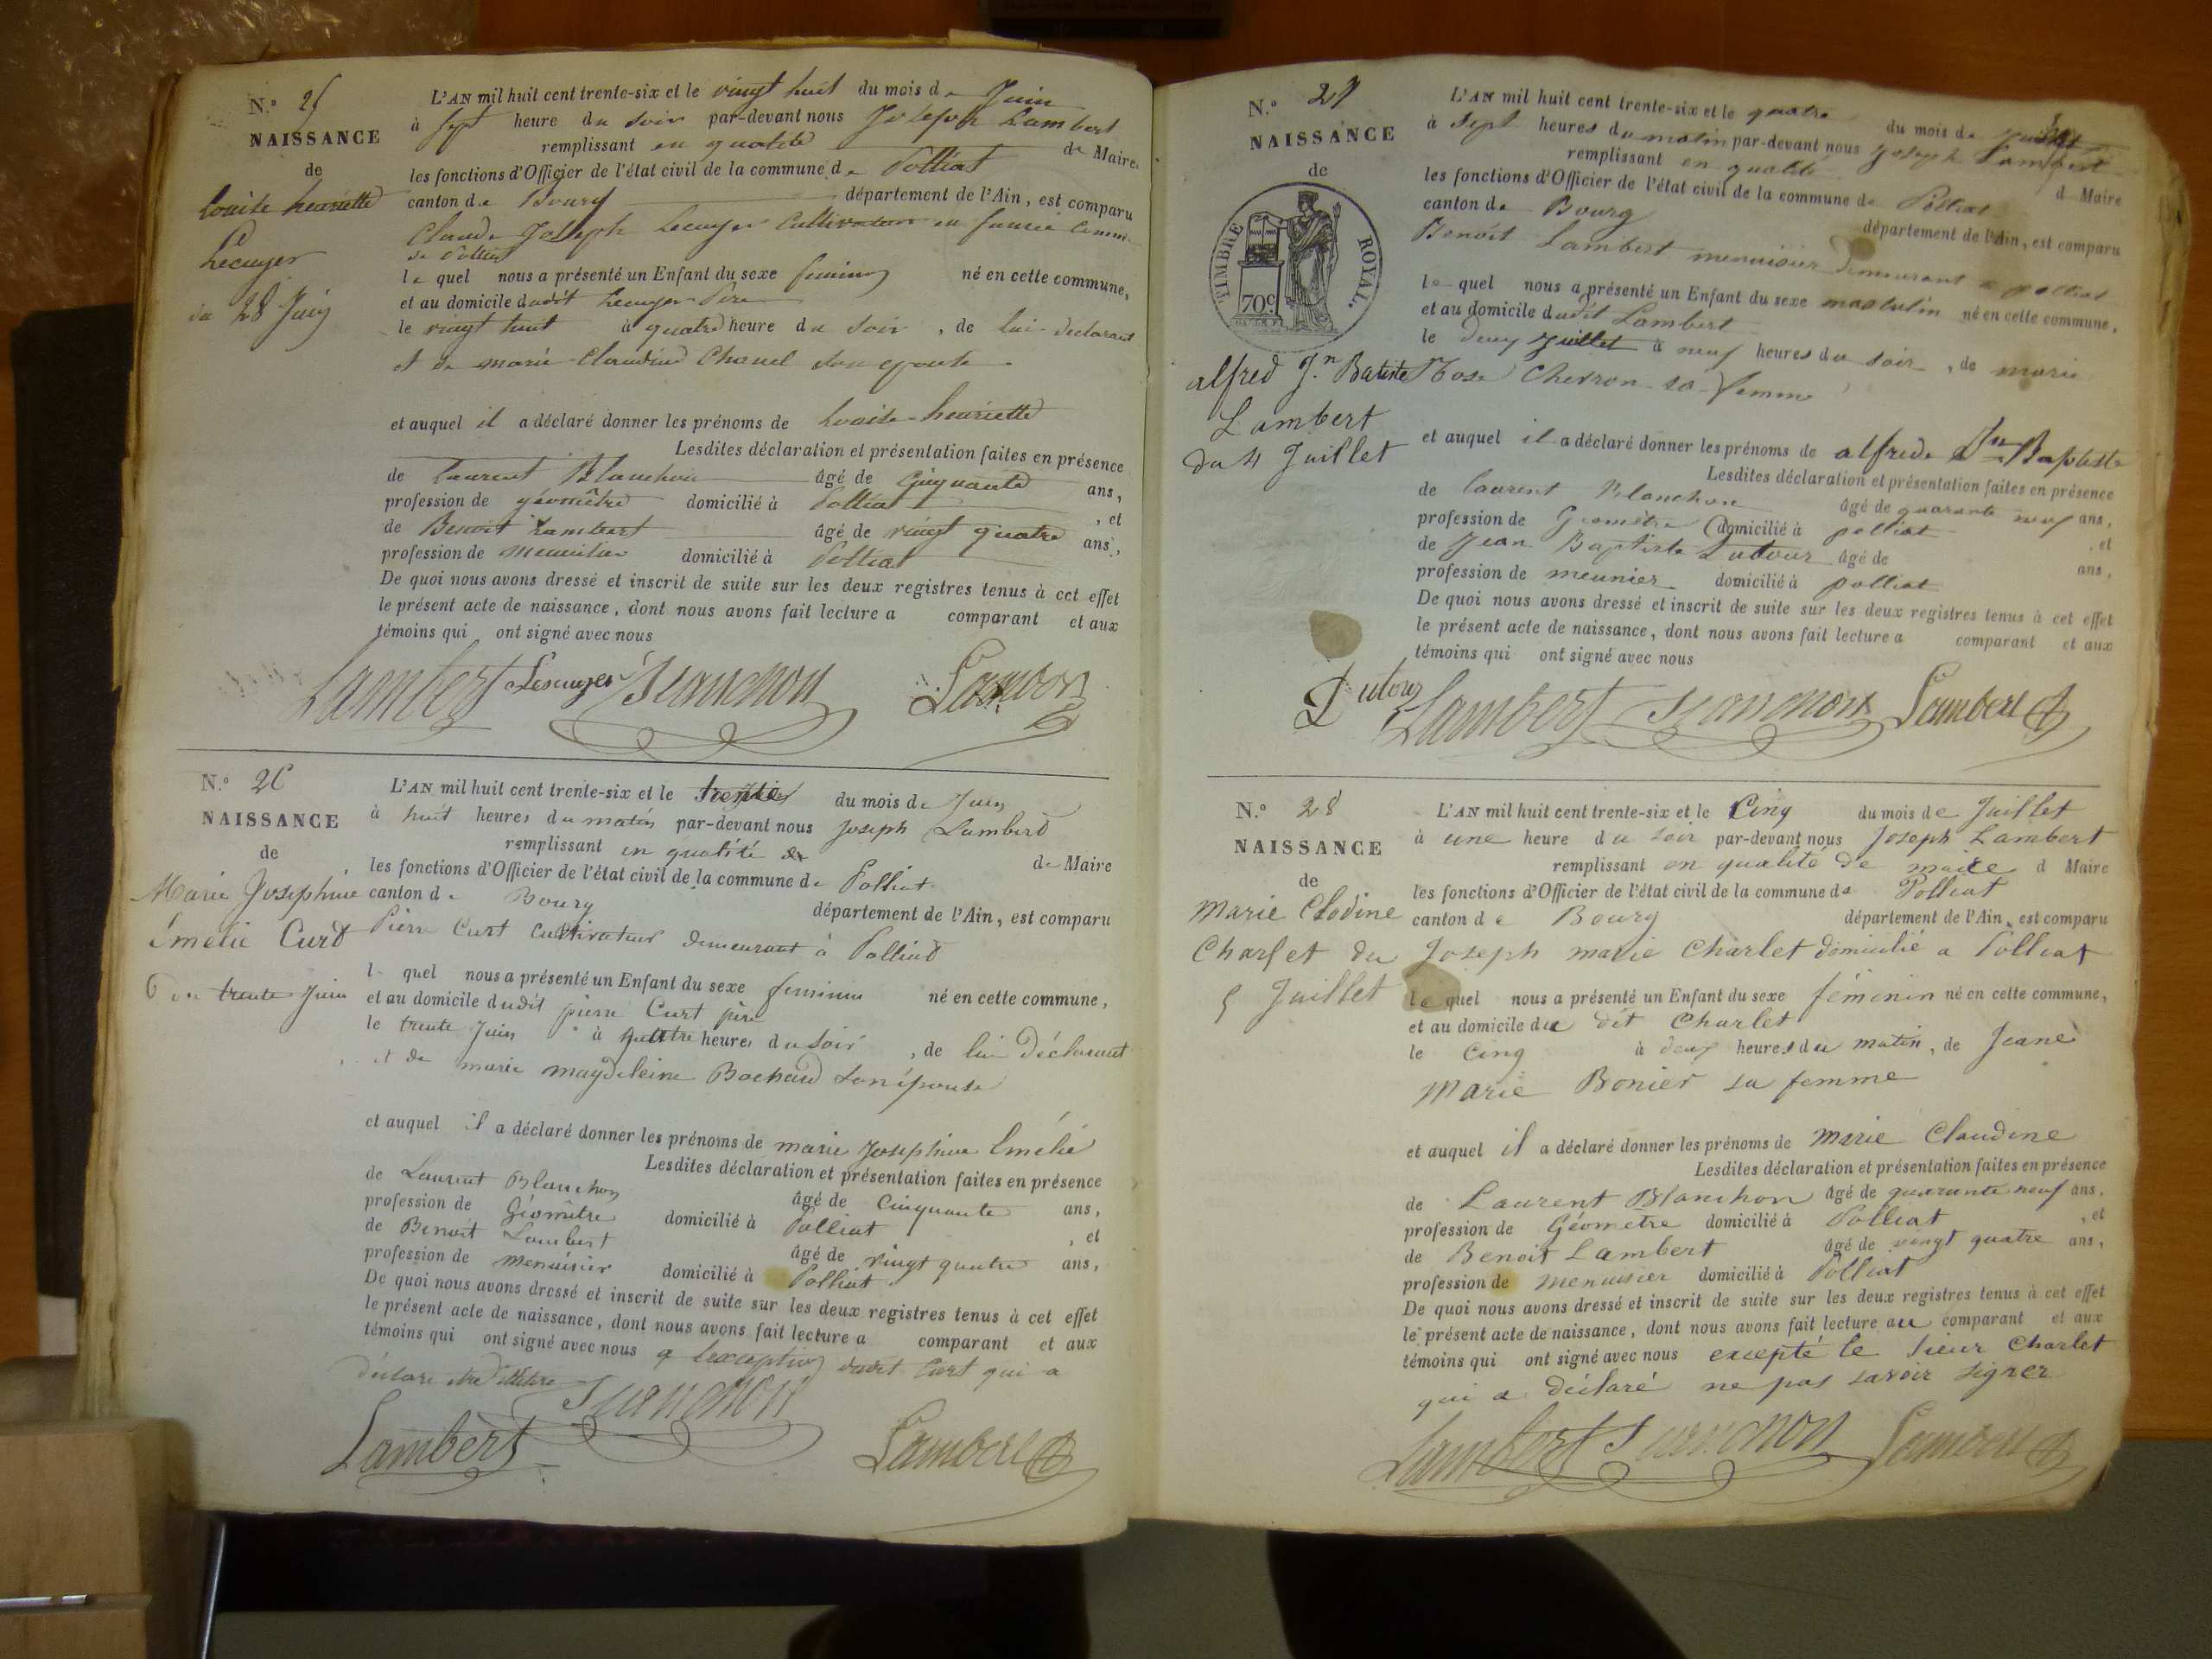 N.° 25
NAISSANCE
de
Louise henriette
Lecuyer
du 28 Juin
L'AN mil huit cent trente-six et le vingt huit du mois de Juin
à sept heure du soir par-devant nous Joseph Lambert
remplissant en qualité de Maire
les fonctions d'Officier de l'état civil de la commune de Polliat
canton de Bourg département de l'Ain, est comparu
Claude Joseph Lecuyer Cultivateur en
de Polliat
le quel nous a présenté un Enfant du sexe feminin né en cette commune,
et au domicile dudit Lecuyer Père
le vingt huit à quatre heure du soir, de lui declarant
et de marie Claudine Chanel son epouse
et auquel il a déclaré donner les prénoms de Louise henriette
Lesdites déclaration et présentation faites en présence
de laurent Blanchon âgé de Cinquante ans,
profession de géomètre domicilié à Polliat, et
de Benoit Lambert âgé de vingt quatre ans,
profession de menuisier domicilié à Polliat
De quoi nous avons dressé et inscrit de suite sur les deux registres tenus à cet effet
le présent acte de naissance, dont nous avons fait lecture a comparant et aux
témoins qui ont signé avec nous
Lambert Lecuyer Blanchon Lambert
N.° 26
NAISSANCE
de
Marie Josephine
émelie Curt
du trente Juin
L'AN mil huit cent trente-six et le trente du mois de Juin
à huit heures du matin par-devant nous Joseph Lambert
remplissant en qualité de de Maire
les fonctions d'Officier de l'état civil de la commune de Polliat
canton de Bourg département de l'Ain, est comparu
Pierre Curt Cultivateur demeurant à Polliat
le quel nous a présenté un Enfant du sexe feminin né en cette commune,
et au domicile dudit pierre Curt père
le trente Juin à quatre heures du soir, de lui Déclarant
et de marie magdeleine Bochard son épouse
et auquel il a déclaré donner les prénoms de marie Josephine émélie
Lesdites déclaration et présentation faites en présence
de Laurent Blanchon âgé de Cinquante ans,
profession de Géomètre domicilié à Polliat, et
de Benoit Lambert âgé de vingt quatre ans,
profession de menuisier domicilié à Polliat
De quoi nous avons dressé et inscrit de suite sur les deux registres tenus à cet effet
le présent acte de naissance, dont nous avons fait lecture a comparant et aux
témoins qui ont signé avec nous a lexception dudit Curt qui a
déclaré
Lambert Blanchon Lambert
N.° 27
NAISSANCE
de
TIMBRE ROYAL.
70c
alfred J.n Batiste
Lambert
du 4 Juillet
L'AN mil huit cent trente-six et le quatre du mois de Juillet
à sept heures du matin par-devant nous Joseph Lambert
remplissant en qualité d Maire
les fonctions d'Officier de l'état civil de la commune de Polliat
canton de Bourg département de l'Ain, est comparu
Benoit Lambert menuisier Demeurant a polliat
le quel nous a présenté un Enfant du sexe masculin né en cette commune,
et au domicile dudit Lambert
le deux Juillet à neuf heures du soir, de marie
Rose Chevron sa femme
et auquel il a déclaré donner les prénoms de alfred Jn Baptiste
Lesdites déclaration et présentation faites en présence
de laurent Blanchon âgé de quarante neuf ans,
profession de Géomètre domicilié à polliat, et
de Jean Baptiste Dutour âgé de ans,
profession de meunier domicilié à polliat
De quoi nous avons dressé et inscrit de suite sur les deux registres tenus à cet effet
le présent acte de naissance, dont nous avons fait lecture a comparant et aux
témoins qui ont signé avec nous
Dutour Lambert Blanchon Lambert
N.° 28
NAISSANCE
de
Marie Clodine
Charlet du
5 Juillet
L'AN mil huit cent trente-six et le Cinq du mois de Juillet
à une heure du soir par-devant nous Joseph Lambert
remplissant en qualité de maire d Maire
les fonctions d'Officier de l'état civil de la commune de Polliat
canton de Bourg département de l'Ain, est comparu
Joseph marie Charlet domicilié a Polliat
le quel nous a présenté un Enfant du sexe féminin né en cette commune,
et au domicile du dit Charlet
le Cinq à deux heures du matin, de Jeane
Marie Bonier sa femme
et auquel il a déclaré donner les prénoms de Marie Claudine
Lesdites déclaration et présentation faites en présence
de Laurent Blanchon âgé de quarante neuf ans,
profession de Géometre domicilié à Polliat, et
de Benoit Lambert âgé de vingt quatre ans,
profession de menuisier domicilié à Polliat
De quoi nous avons dressé et inscrit de suite sur les deux registres tenus à cet effet
le présent acte de naissance, dont nous avons fait lecture au comparant et aux
témoins qui ont signé avec nous excepté le sieur Charlet
qui a déclaré ne pas savoir signer
Lambert Blanchon Lambert